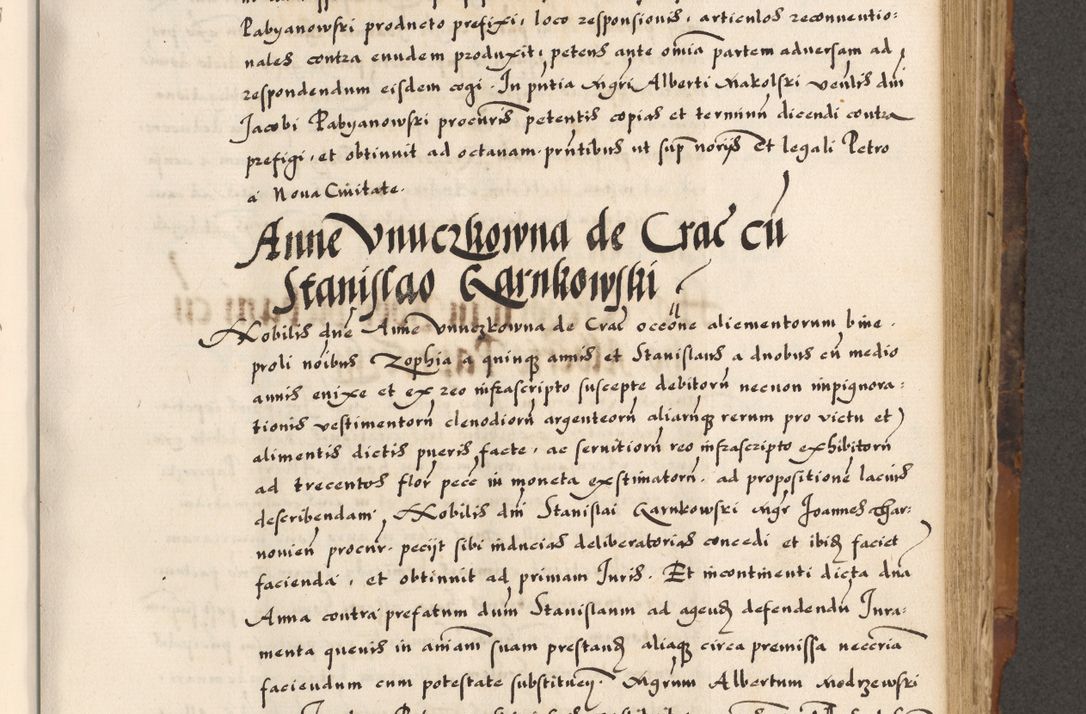 Pabyanowski producto prefixi, loco responsionis, articulos reconventio:
nales contra eundem produxit, petens ante omia partem adversam ad
respondendum eisdem cogi. In pntia Mgri Alberti Makolski venlis dni
Jacobi Pabyanowski procuris petentis copias et terminu dicendi contra
prefigi, et obtinuit ad octavam. pntibus ut sup norijs Et legali Petro
a Nova Civitate.
Anne Vnuczkowna de Crac cu
Stanislao Karnkowski
Nobilis dne Anne Vnuczkowna de Crac occone aliementorum bine
proli noibus Zophia a quinque annis et Stanislaus a duobus cu medio
annis enixe et ex reo infrascripto suscepte debitoru necnon impignora:
tionis vestimentoru clenodioru argenteoru aliarumque rerum pro victu et
alimentis dictis pueris facte, ac servitioru reo infrascripto exhibitoru
ad trecentos flor pecc in moneta existimatoru. ad propositione lacius
describendam, Nobilis dni Stanislai Karnkowski Mgr Joannes Char:
novien procur. pecijt sibi inducias deliberatorias concedi et ibidem faciet
facienda, et obtinuit ad primam Juris. Et incontinenti dicta dna
Anna contra prefatum dnm Stanislaum ad agendum defendendu Jura:
menta quevis in aniam suam prestandum aliaque circa premissa neccria
faciendum cum potestate substituendi. Mgrum Albertum Modrzewski